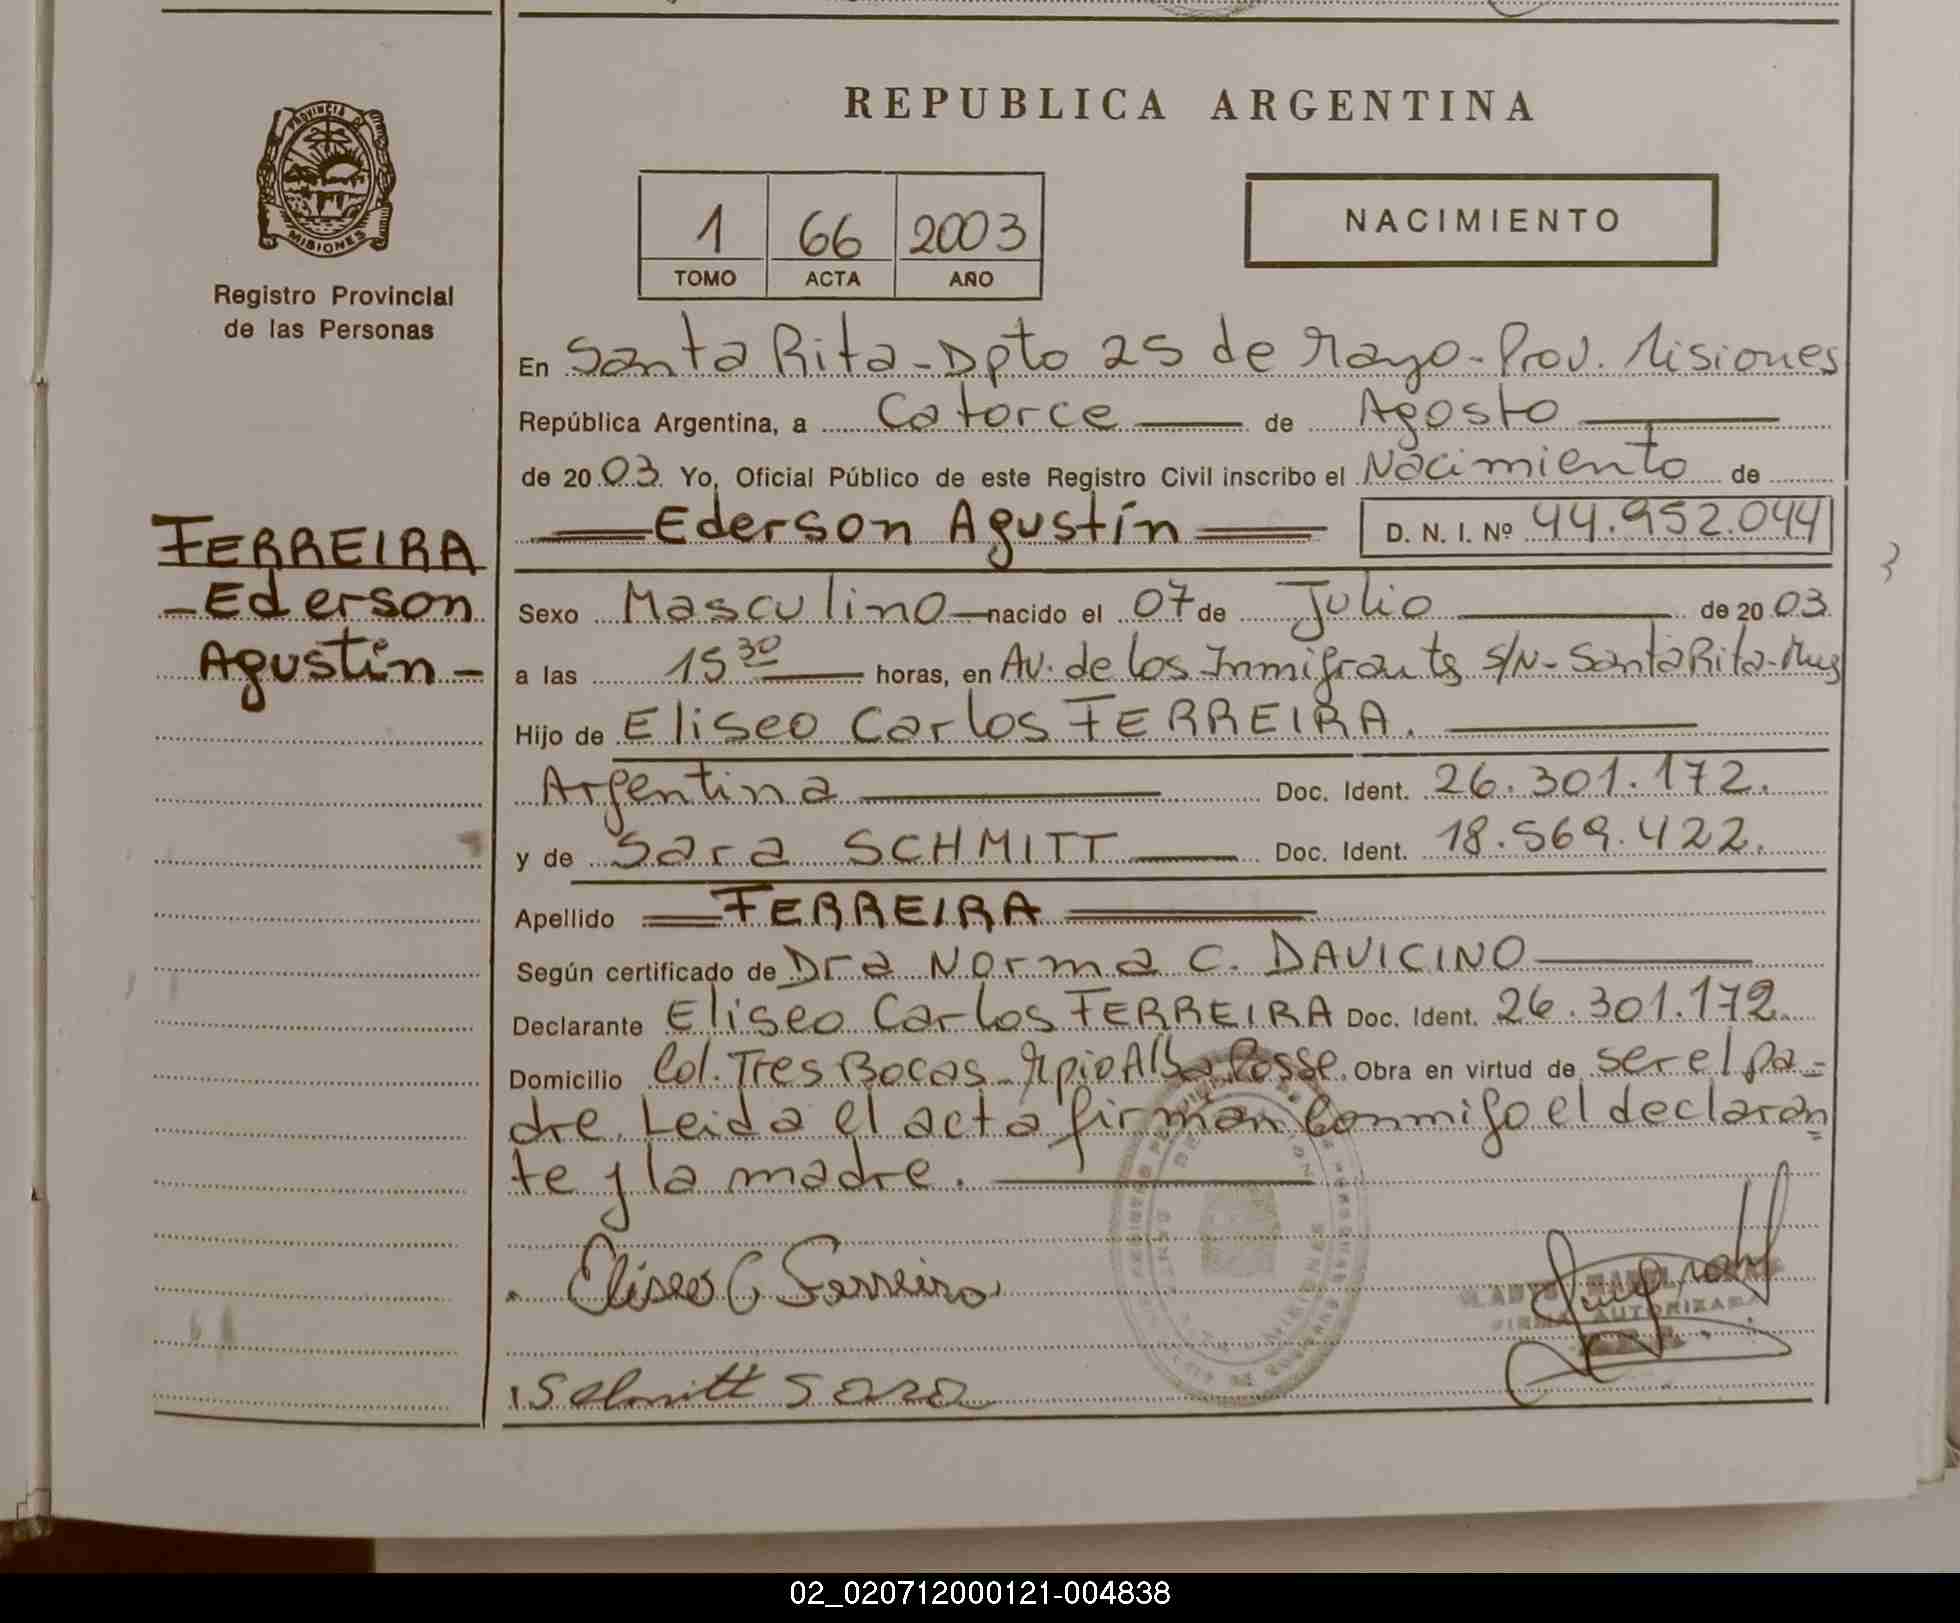 REPUBLICA ARGENTINA
PROVINCIA DE
MISIONES
Registro Provincial
de las Personas
1 66 2003
TOMO ACTA AÑO
NACIMIENTO
En Santa Rita - Dpto 25 de Mayo - Prov. Misiones
República Argentina, a Catorce de Agosto
de 2003. Yo, Oficial Público de este Registro Civil inscribo el Nacimiento de
Ederson Agustín D. N. I. Nº 44.952.044
FERREIRA
- Ederson
Agustín -
Sexo Masculino nacido el 07 de Julio de 2003.
a las 15 30 horas, en Av. de los Inmigrantes S/N - Santa Rita - Mnes
Hijo de Eliseo Carlos FERREIRA.
Argentina Doc. Ident. 26.301.172.
y de Sara SCHMITT Doc. Ident. 18.569.422.
Apellido FERREIRA
Según certificado de Dra Norma C. DAVICINO
Declarante Eliseo Carlos FERREIRA Doc. Ident. 26.301.172.
Domicilio Col. Tres Bocas - Mpio Alba Posse. Obra en virtud de ser el pa-
dre. Leida el acta firman conmigo el declaran
te y la madre.
Eliseo C Ferreira
FIRMA AUTORIZADA
Schmitt Sara
02_020712000121-004838